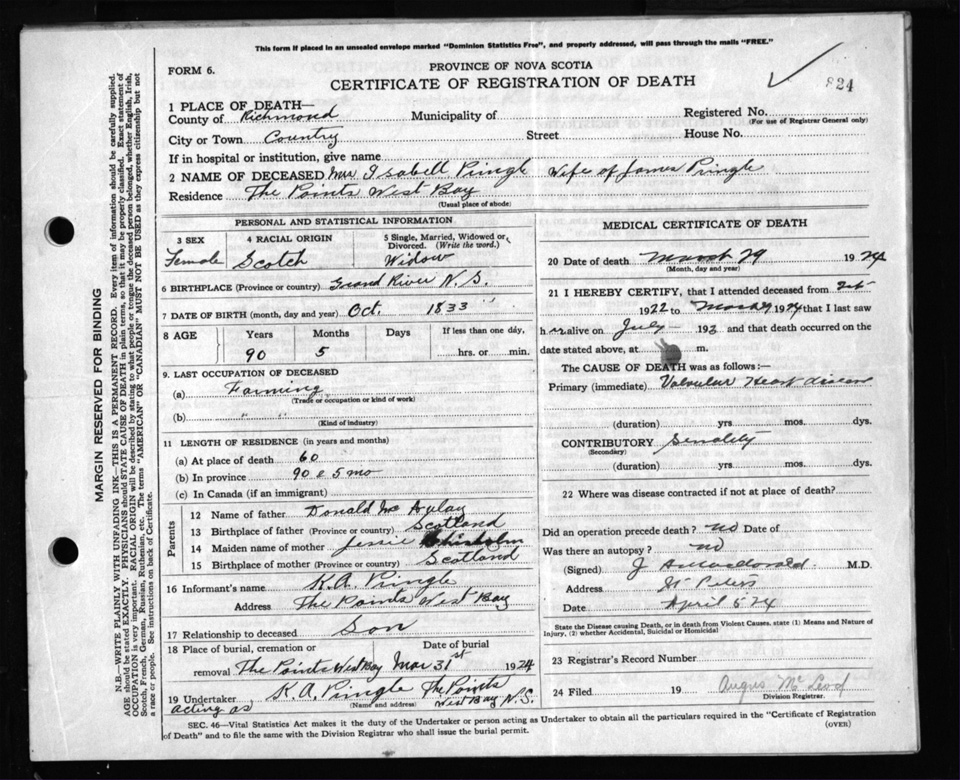 This form if placed in an unsealed envelope marked "Dominion Statistics Free", and properly addressed, will pass through the mails "FREE."
FORM 6.
PROVINCE OF NOVA SCOTIA
CERTIFICATE OF REGISTRATION OF DEATH
824
1 PLACE OF DEATH—
County of Richmond Municipality of Registered No.
(For use of Registrar General only)
City or Town Country Street House No.
If in hospital or institution, give name
2 NAME OF DECEASED Mrs Isabell Pringle Wife of James Pringle
Residence The Points West Bay
(Usual place of abode)
PERSONAL AND STATISTICAL INFORMATION
3 SEX 4 RACIAL ORIGIN 5 Single, Married, Widowed or Divorced. (Write the word.)
Female Scotch Widow
6 BIRTHPLACE (Province or country) Grand River N.S.
7 DATE OF BIRTH (month, day and year) Oct. 1833
8 AGE Years Months Days If less than one day,
90 5 hrs. or min.
9. LAST OCCUPATION OF DECEASED
(a) Farming
(Trade or occupation or kind of work)
(b) " "
(Kind of industry)
11 LENGTH OF RESIDENCE (in years and months)
(a) At place of death 60
(b) In province 90 & 5 mo
(c) In Canada (if an immigrant)
Parents
12 Name of father Donald Mc Aulay
13 Birthplace of father (Province or country) Scotland
14 Maiden name of mother Jessie Chisholm
15 Birthplace of mother (Province or country) Scotland
16 Informant's name K.A. Pringle
Address The Points West Bay
17 Relationship to deceased Son
18 Place of burial, cremation or Date of burial
removal The Points West Bay Mar 31st 1924
19 Undertaker K.A. Pringle The Points
acting as (Name and address) West Bay N.S.
MEDICAL CERTIFICATE OF DEATH
20 Date of death March 29 1924
(Month, day and year)
21 I HEREBY CERTIFY, that I attended deceased from
1922 to 1924 that I last saw
her alive on July 193 and that death occurred on
date stated above, at m.
The CAUSE OF DEATH was as follows:—
Primary (immediate) Valvular Heart disease
(duration) yrs. mos. dys.
CONTRIBUTORY Senality
(Secondary)
(duration) yrs. mos. dys.
22 Where was disease contracted if not at place of death?
Did an operation precede death? no Date of
Was there an autopsy? no
(Signed) J A Macdonald M.D.
Address St Peters
Date April 5 24
State the Disease causing Death, or in death from Violent Causes, state (1) Means and Nature of Injury, (2) whether Accidental, Suicidal or Homicidal
23 Registrar's Record Number
24 Filed 19 Angus Mc Leod
Division Registrar.
SEC. 46—Vital Statistics Act makes it the duty of the Undertaker or person acting as Undertaker to obtain all the particulars required in the "Certificate of Registration
of Death" and to file the same with the Division Registrar who shall issue the burial permit. (OVER)
MARGIN RESERVED FOR BINDING
N.B.—WRITE PLAINLY WITH UNFADING INK—THIS IS A PERMANENT RECORD. Every item of information should be carefully supplied.
AGE should be stated EXACTLY. PHYSICIANS should STATE CAUSE OF DEATH in plain terms, so that it may be properly classified. Exact statement of
OCCUPATION is very important. RACIAL ORIGIN will be described by stating to what people or tongue the deceased person belonged, whether English, Irish,
Scotch, French, German, Russian, Ruthenian, etc. The terms "AMERICAN" or "CANADIAN" MUST NOT BE USED as they express citizenship but not
a race or people. See instructions on back of Certificate.